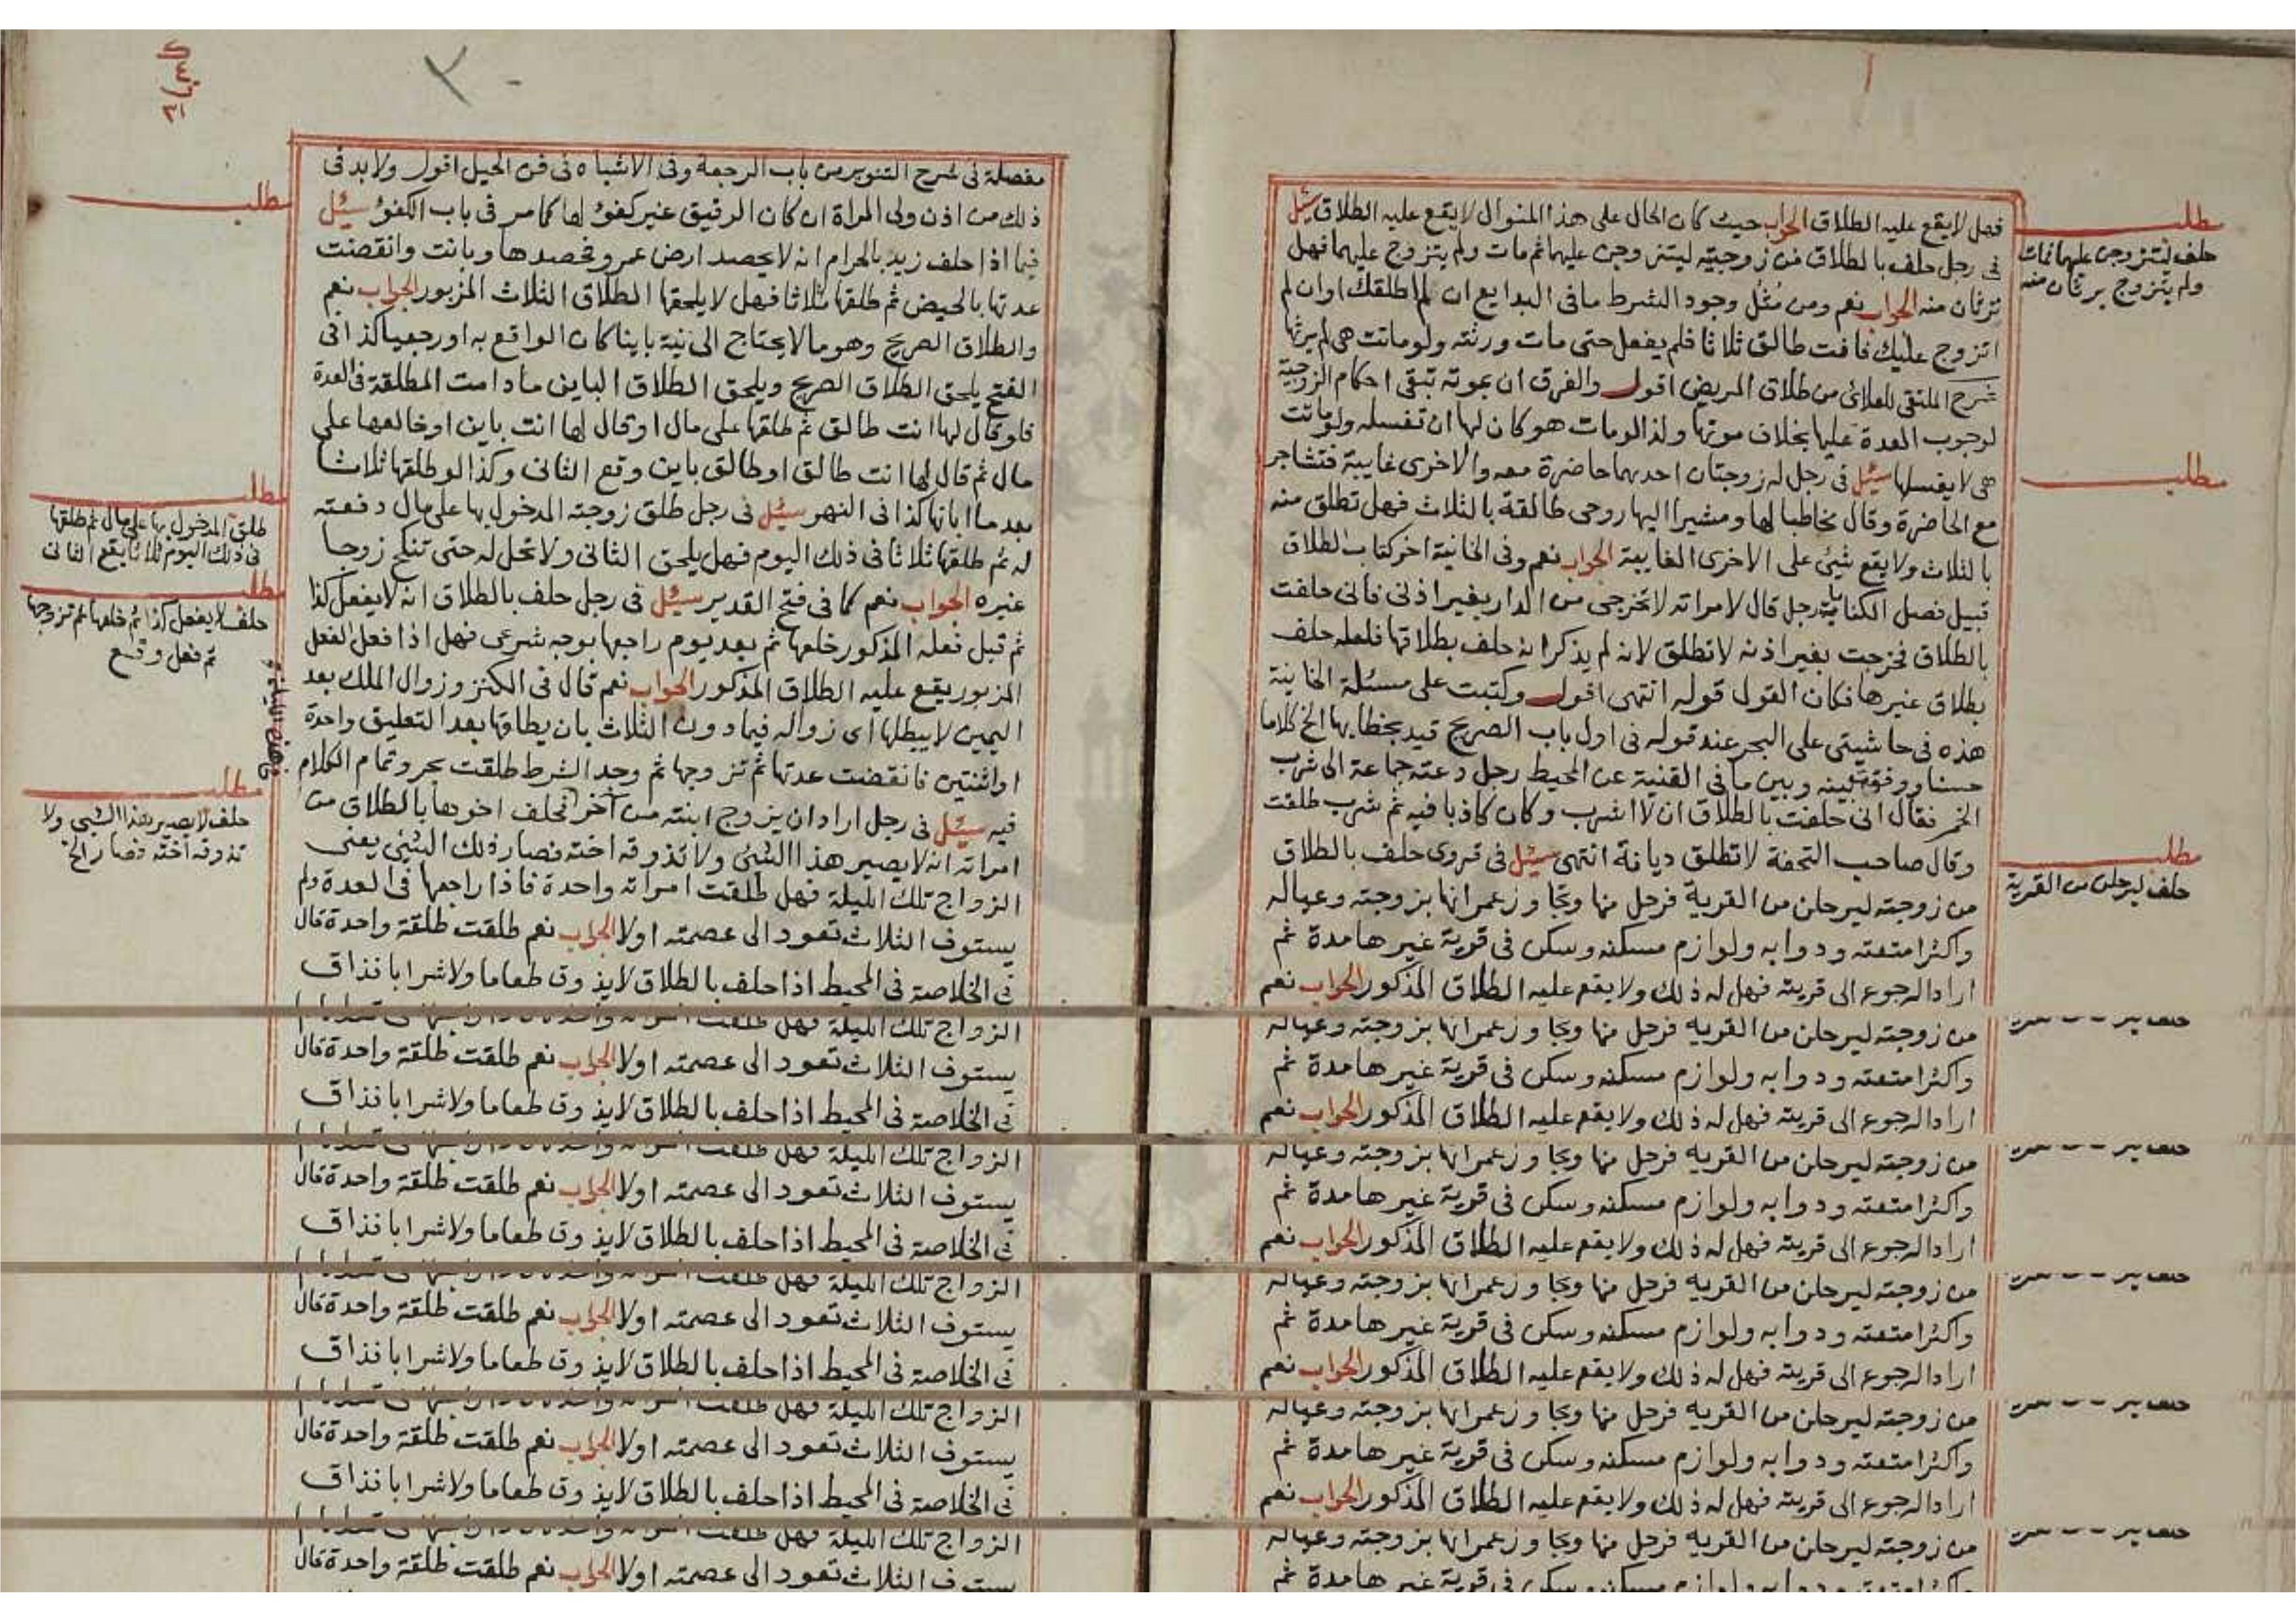 فصل لا يقع عليه الطلاق الجواب حيث كان الحال على هذا المنوال لا يقع عليه الطلاق سئل
فى رجل حلف بالطلاق من زوجتيه ليتزوجن عليهما ثم مات ولم يتزوج عليهما فهل
ترثان منه الجواب نعم ومن مثل وجود الشرط ما فى البدايع ان لم اطلقك او ان لم
اتزوج عليك فانت طالق ثلاثا فلم يفعل حتى مات ورثته ولو ماتت هى لم يرثها
شرح الملتقى للعلائى من طلاق المريض اقول والفرق ان بموته تبقى احكام الزوجية
لوجوب العدة عليها بخلاف موتها ولذا لو مات هو كان لها ان تغسله ولو ماتت
هى لا يغسلها سئل فى رجل له زوجتان احديهما حاضرة معه والاخرى غايبة فتشاجر
مع الحاضرة وقال مخاطبا لها ومشيرا اليها روحى طالقة بالثلاث فهل تطلق منه
بالثلاث ولا يقع شيئ على الاخرى الغايبة الجواب نعم وفى الخانية اخر كتاب الطلاق
قبيل فصل الكناية رجل قال لامراته لا تخرجى من الدار بغير اذنى فانى حلفت
بالطلاق فخرجت بغير اذنه لا تطلق لانه لم يذكر انه حلف بطلاقها فلعله حلف
بطلاق غيرها فكان القول قوله انتهى اقول وكتبت على مسئلة الخانية
هذه فى حاشيتى على البحر عند قوله فى اول باب الصريح قيد بخطابها الخ كلاما
حسنا ووفقت بينه وبين ما فى القنية عن المحيط رجل دعته جماعة الى شرب
الخمر فقال انى حلفت بالطلاق ان لا اشرب وكان كاذبا فيه ثم شرب طلقت
وقال صاحب التحفة لا تطلق ديانة انتهى سئل فى قروى حلف بالطلاق
من زوجته ليرحلن من القرية فرحل منها ونجا وزعمر انها بزوجته وعياله
واكثر امتعته ودوابه ولوازم مسكنه وسكن فى قرية غيرها مدة ثم
اراد الرجوع الى قريته فهل له ذلك ولا يقع عليه الطلاق المذكور الجواب نعم
من زوجته ليرحلن من القرية فرحل منها ونجا وزعمر انها بزوجته وعياله
واكثر امتعته ودوابه ولوازم مسكنه وسكن فى قرية غيرها مدة ثم
اراد الرجوع الى قريته فهل له ذلك ولا يقع عليه الطلاق المذكور الجواب نعم
من زوجته ليرحلن من القرية فرحل منها ونجا وزعمر انها بزوجته وعياله
واكثر امتعته ودوابه ولوازم مسكنه وسكن فى قرية غيرها مدة ثم
اراد الرجوع الى قريته فهل له ذلك ولا يقع عليه الطلاق المذكور الجواب نعم
من زوجته ليرحلن من القرية فرحل منها ونجا وزعمر انها بزوجته وعياله
واكثر امتعته ودوابه ولوازم مسكنه وسكن فى قرية غيرها مدة ثم
اراد الرجوع الى قريته فهل له ذلك ولا يقع عليه الطلاق المذكور الجواب نعم
من زوجته ليرحلن من القرية فرحل منها ونجا وزعمر انها بزوجته وعياله
واكثر امتعته ودوابه ولوازم مسكنه وسكن فى قرية غيرها مدة ثم
اراد الرجوع الى قريته فهل له ذلك ولا يقع عليه الطلاق المذكور الجواب نعم
من زوجته ليرحلن من القرية فرحل منها ونجا وزعمر انها بزوجته وعياله
واكثر امتعته ودوابه ولوازم مسكنه وسكن فى قرية غيرها مدة ثم
مطلب
حلف ليتزوجن عليهما فمات
ولم يتزوج يرثان منه
مطلب
مطلب
حلف ليرحلن من القرية
مفصلة فى شرح التنوير من باب الرجعة وفى الاشباه فى فن الحيل اقول ولا بد فى
ذلك من اذن ولى المراة ان كان الرقيق غير كفوء لها كما مر فى باب الكفوء سئل
فيما اذا حلف زيد بالحرام انه لا يحصد ارض عمرو فحصدها وبانت وانقضت
عدتها بالحيض ثم طلقها ثلاثا فهل لا يلحقها الطلاق الثلاث المزبور الجواب نعم
والطلاق الصريح وهو ما لا يحتاج الى نية باينا كان الواقع به او رجعيا كذا فى
الفتح يلحق الطلاق الصريح ويلحق الطلاق الباين ما دامت المطلقة فى العدة
فلو قال لها انت طالق ثم طلقها على مال او قال لها انت باين او خالعها على
مال ثم قال لها انت طالق او طالق باين وقع الثانى وكذا لو طلقها ثلاثا
بعد ما ابانها كذا فى النهر سئل فى رجل طلق زوجته المدخول بها على مال دفعته
له ثم طلقها ثلاثا فى ذلك اليوم فهل يلحق الثانى ولا تحل له حتى تنكح زوجا
غيره الجواب نعم كما فى فتح القدير سئل فى رجل حلف بالطلاق انه لا يفعل كذا
ثم قبل فعله المذكور خلعها ثم بعد يوم راجعها بوجه شرعى فهل اذا فعل الفعل
المزبور يقع عليه الطلاق المذكور الجواب نعم قال فى الكنز وزوال الملك بعد
اليمين لا يبطلها اى زواله فيما دون الثلاث بان يطلقها بعد التعليق واحدة
او اثنتين فانقضت عدتها ثم تزوجها ثم وجد الشرط طلقت بحر وتمام الكلام
فيه سئل فى رجل اراد ان يزوج ابنته من آخر فحلف اخوها بالطلاق من
امراته انه لا يصير هذا الشئ ولا تذوقه اخته فصار ذلك الشئ يعنى
الزواج تلك الليلة فهل طلقت امراته واحدة فاذا راجعها فى العدة ولم
يستوف الثلاث تعود الى عصمته اولا الجواب نعم طلقت طلقة واحدة قال
فى الخلاصة فى المحيط اذا حلف بالطلاق لا يذوق طعاما ولا شرابا فذاق
الزواج تلك الليلة فهل طلقت
يستوف الثلاث تعود الى عصمته اولا الجواب نعم طلقت طلقة واحدة قال
فى الخلاصة فى المحيط اذا حلف بالطلاق لا يذوق طعاما ولا شرابا فذاق
الزواج تلك الليلة فهل طلقت
يستوف الثلاث تعود الى عصمته اولا الجواب نعم طلقت طلقة واحدة قال
فى الخلاصة فى المحيط اذا حلف بالطلاق لا يذوق طعاما ولا شرابا فذاق
الزواج تلك الليلة فهل طلقت
يستوف الثلاث تعود الى عصمته اولا الجواب نعم طلقت طلقة واحدة قال
فى الخلاصة فى المحيط اذا حلف بالطلاق لا يذوق طعاما ولا شرابا فذاق
الزواج تلك الليلة فهل طلقت
يستوف الثلاث تعود الى عصمته اولا الجواب نعم طلقت طلقة واحدة قال
فى الخلاصة فى المحيط اذا حلف بالطلاق لا يذوق طعاما ولا شرابا فذاق
الزواج تلك الليلة فهل طلقت
يستوف الثلاث تعود الى عصمته اولا الجواب نعم طلقت طلقة واحدة قال
مطلب
مطلب
طلق المدخول بها على مال ثم طلقها
فى ذلك اليوم ثلاثا يقع الثانى
مطلب
حلف لا يفعل كذا ثم خلعها ثم تزوجها
ثم فعل وقع
مطلب
حلف لا يصير هذا الشئ ولا
تذوقه اخته فصار الخ